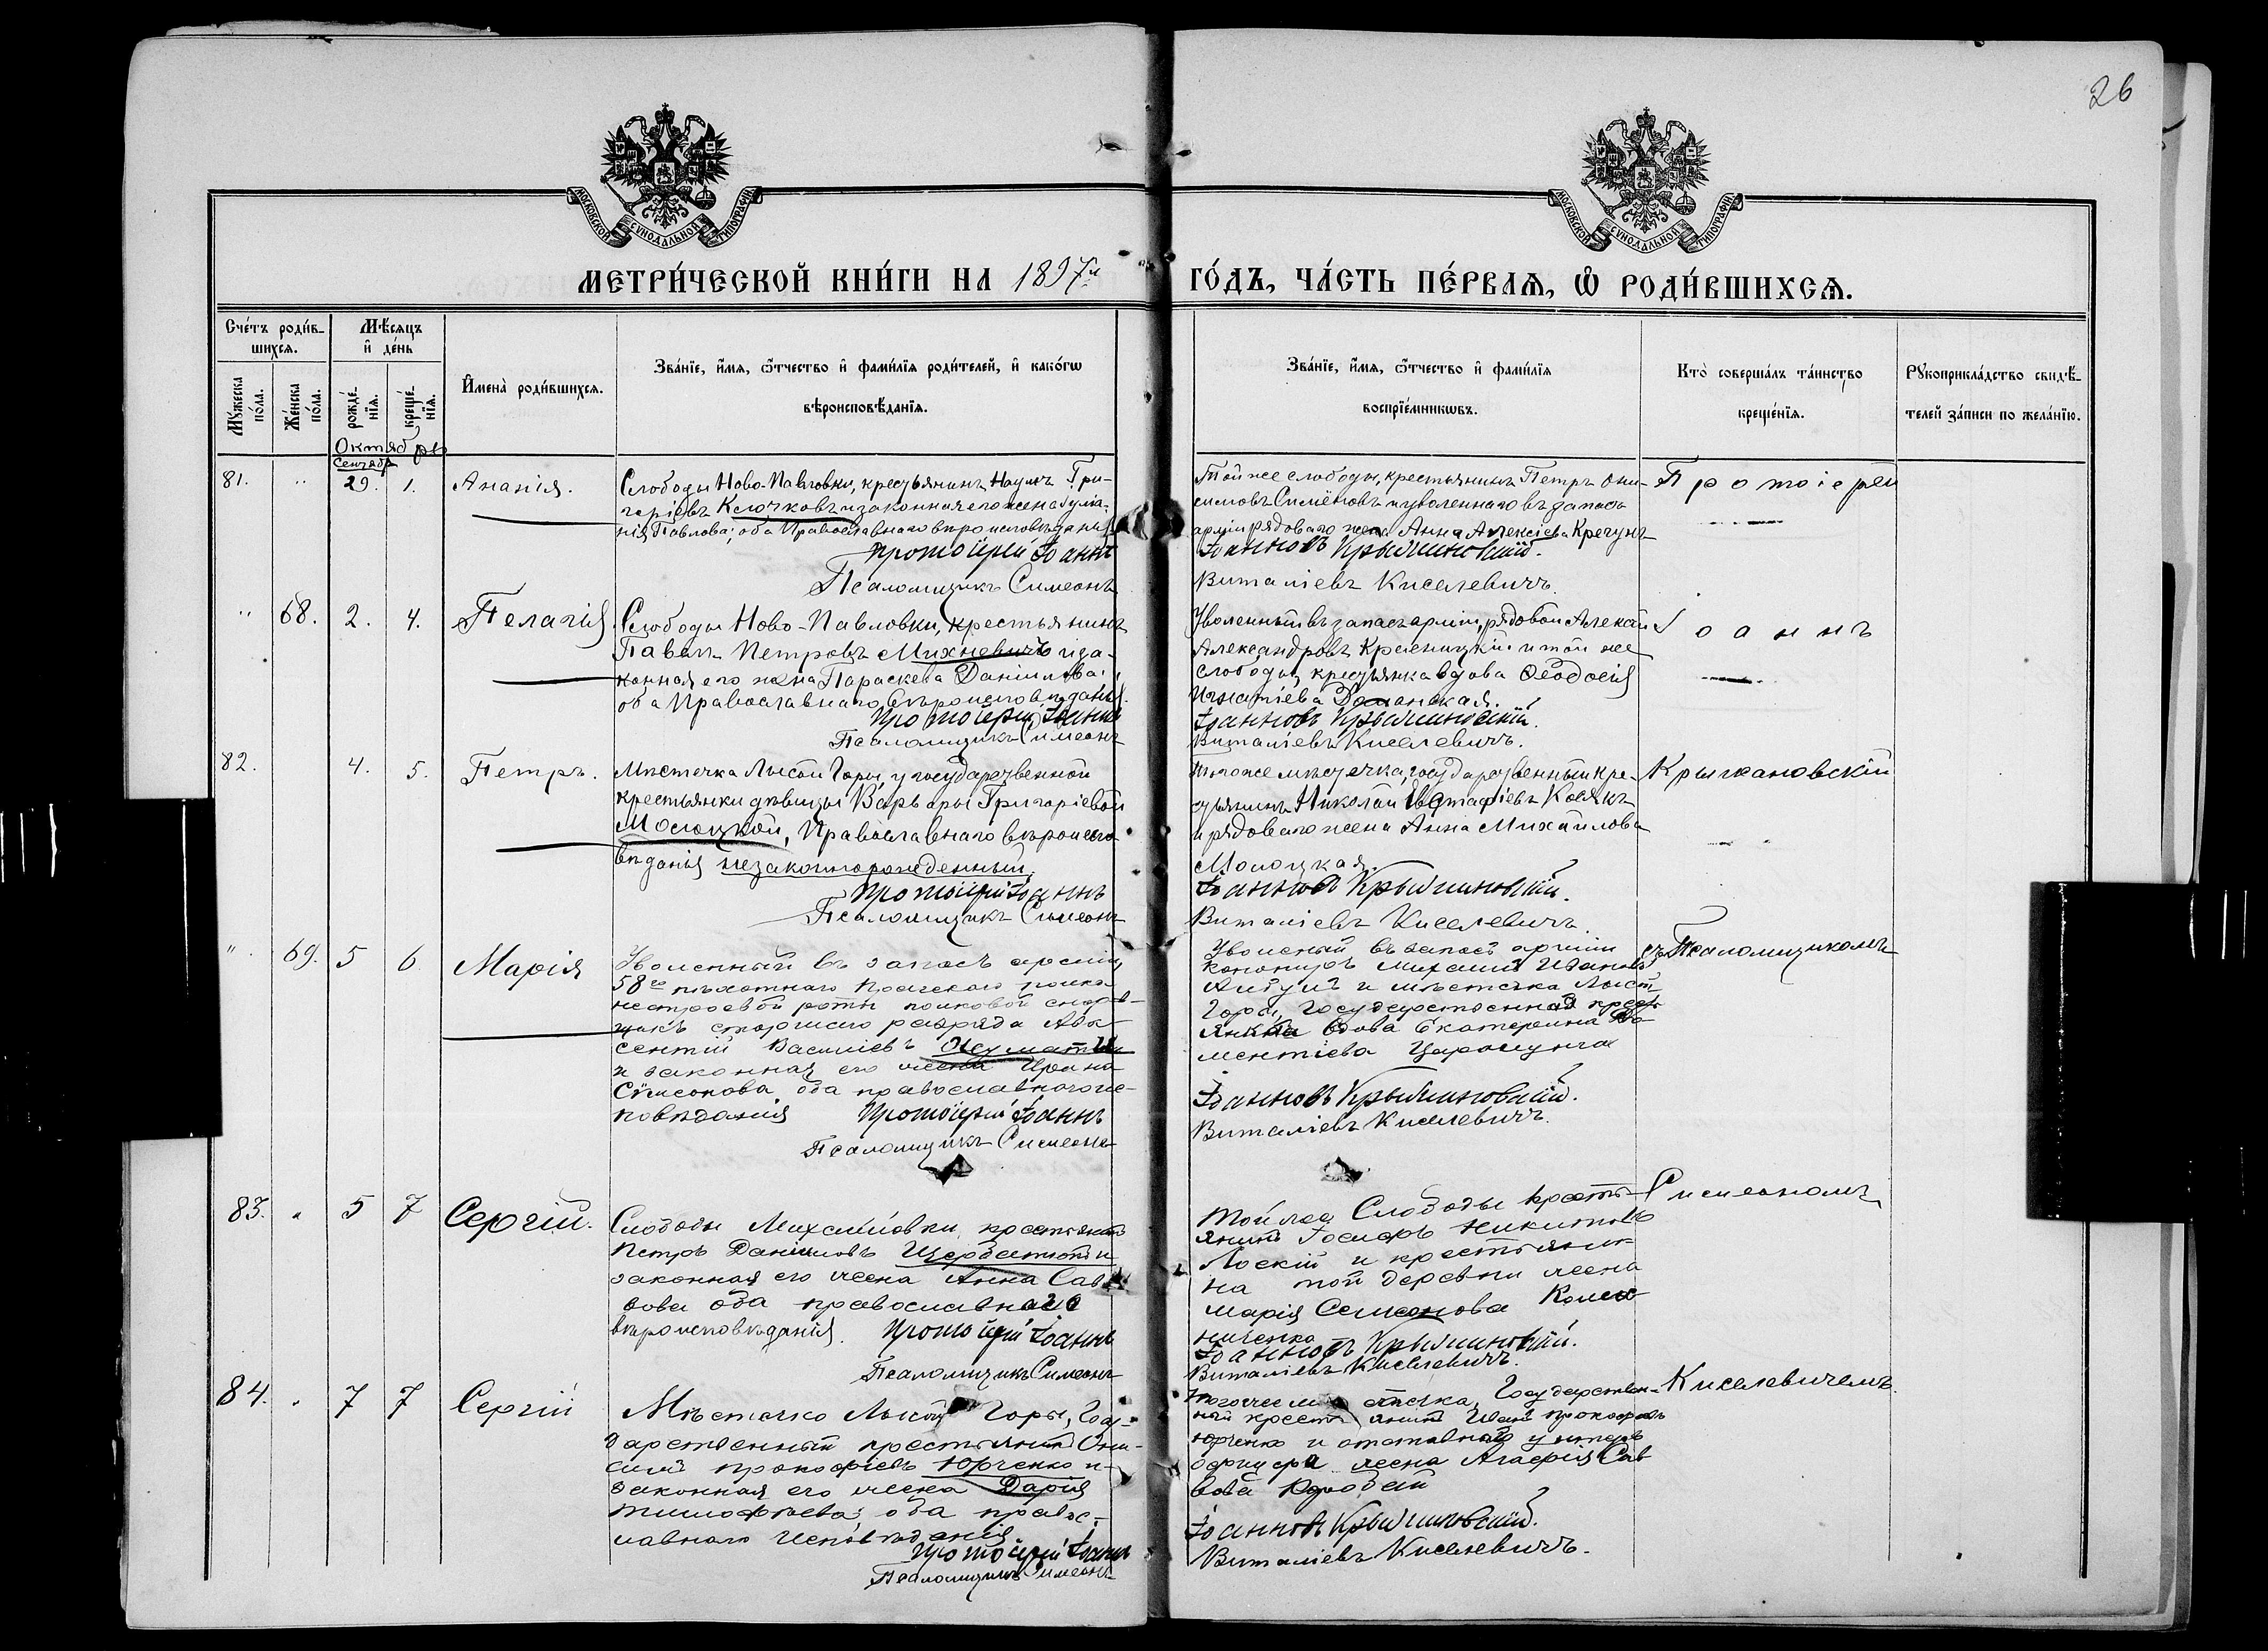 26
МОСКОВСКОЙ СУНОДАЛЬНОЙ ТИПОГРАФІИ
МОСКОВСКОЙ СУНОДАЛЬНОЙ ТИПОГРАФІИ
МЕТРИ́ЧЕСКОЙ КНИ́ГИ НА 1897й ГО́ДЪ, ЧА́СТЬ ПЕ́РВАѦ, Ѡ҆ РОДИ́ВШИХСѦ.
Сче́тъ роди́в-
шихсѧ.
Мѣ́сѧцъ
и҆ де́нь
Мꙋ́жеска
по́ла.
Же́нска
по́ла.
рожде́-
нїѧ.
креще́-
нїѧ.
И҆мена̀ роди́вшихсѧ.
Зва́нїе, и҆́мѧ, ѻ҆́тчество и҆ фами́лїѧ роди́телей, и҆ како́гѡ
вѣроисповѣ́данїѧ.
Зва́нїе, и҆́мѧ, ѻ҆́тчество и҆ фами́лїѧ
воспрїе́мникѡвъ.
Кто̀ соверша́лъ та́инство
креще́нїѧ.
Рꙋкоприкла́дство свидѣ́-
телей за́писи по жела́нїю.
Октябрь
Сентябр
81. " 29. 1. Ананія.
Слободы Ново-Павловки, крестьянинъ Наумъ Гри-
горіевъ Клочковъ и законная его жена Іулiа-
нія Павлова; оба Православнаго вѣроисповѣданія
Протоіерей Іоаннъ
Псаломщикъ Симеонъ
Той же слободы, крестьянинъ Петръ Они-
симовъ Симёновъ и уволеннаго въ запасъ
арміи рядоваго жена Анна Алексіева Кречунъ
Іоанновъ Крыжановскій.
Виталіевъ Киселевичъ.
Протоіерей
" 68. 2. 4. Пелагія
Слободы Ново-Павловки, крестьянинъ
Павелъ Петровъ Михневичъ и за-
конная его жена Параскева Даніилова;
оба Православнаго вѣроисповѣданія.
Протоіерей Іоаннъ
Псаломщикъ Симеонъ
Уволенный въ запасъ арміи, рядовой Алексѣй
Александровъ и той же
слободы, крестьянка вдова Ѳеодосія
Игнатіева
Іоанновъ Крыжановскій.
Виталіевъ Киселевичъ.
Іоаннъ
82. 4. 5. Петръ.
Мѣстечка Лысой Горы, у государственной
крестьянки дѣвицы Варвары Григоріевой
Молоцкой, Православнаго вѣроиспо-
вѣданія незаконнорожденный.
Протоіерей Іоаннъ
Псаломщикъ Симеонъ
Того же мѣстечка, государственный кре-
стьянинъ Николай Евстафіевъ
и рядоваго жена Анна Михайлова
Молоцкая.
Іоанновъ Крыжановскій.
Виталіевъ Киселевичъ.
Крыжановскій
" 69. 5 6. Марія
Уволенный въ запасъ арміи,
58го пѣхотнаго Прагскаго полка
нестроевой роты полковой
старшаго разряда Авк-
сентій Василіевъ
и законная его жена Ирина
Симеонова оба православнаго ис-
повѣданія Протоіерей Іоаннъ
Псаломщикъ Симеонъ
Уволеный въ запасъ арміи
канониръ Михаилъ Ивановъ
и мѣстечка Лысой
Горы, Государственная крестъ-
янка вдова Екатерина
ментіева
Іоанновъ Крыжановскій.
Виталіевъ Киселевичъ.
съ Псаломщикомъ
83. " 5 7 Сергій.
Слободы Михайловки, крестьянинъ
Петръ Даніиловъ Щербатюкъ и
законная его жена Анна Сав-
вова оба православнаго
вѣроисповѣданія. Протоіерей Іоаннъ
Псаломщикъ Симеонъ
Той же Слободы кресть-
янинъ Никитовъ
и крестьяни-
на той деревни жена
Марія Семионова

Іоанновъ Крыжановскій.
Виталіевъ Киселевичъ.
Симеономъ
84. " 7 7 Сергій
Мѣстечко Лысой Горы, Госу-
дарственный крестьянинъ Они-
симъ Прокофіевъ Юрченко и
законная его жена Дарія
Тимофѣева, оба правос-
лавнаго исповѣданія
Протоіерей Іоаннъ
Псаломщикъ Симеонъ
Того же мѣстечка, Государствен-
ный крестьянинъ Иванъ Прокофьевъ
Юрченко и отставнаго унтеръ
офицера жена Агафія Сав
вова
Іоанновъ Крыжановскій.
Виталіевъ Киселевичъ.
Киселевичемъ.